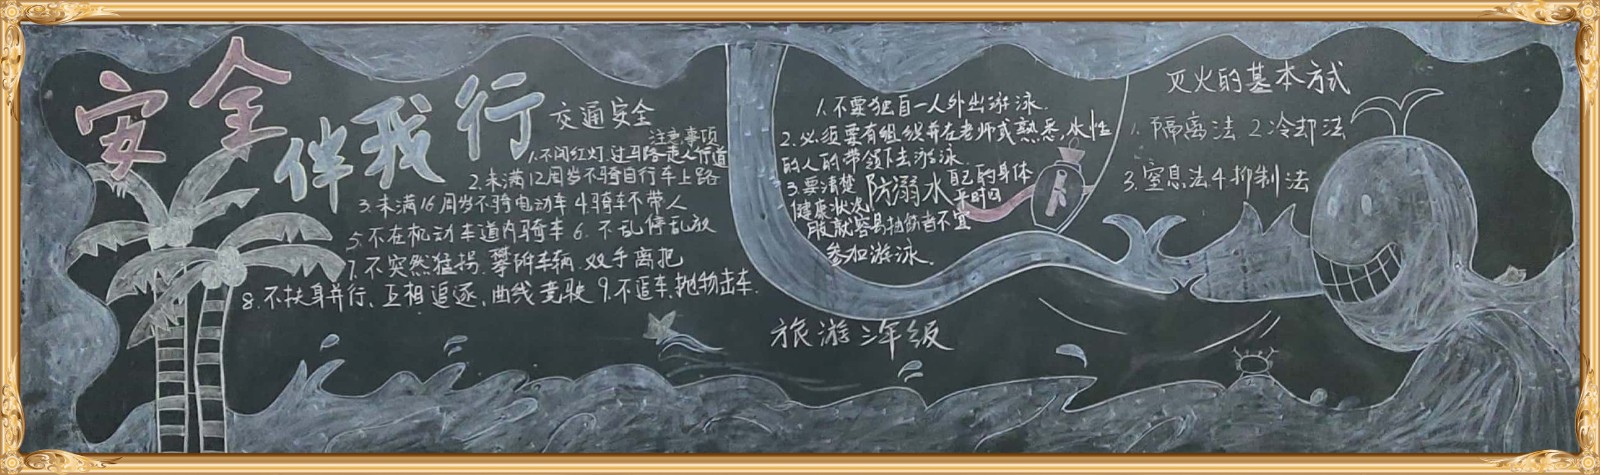 安全
伴我行
交通安全
注意事项
1.不闯红灯.过马路走人行道
2.未满12周岁不骑自行车上路
3.未满16周岁不骑电动车 4.骑车不带人
5.不在机动车道内骑车 6.不乱停乱放
7.不突然猛拐.攀附车辆.双手离把
8.不扶身并行、互相追逐、曲线驾驶 9.不追车.抛物击车.
1.不要独自一人外出游泳.
2.必须要有组织并在老师或熟悉,水性
的人的带领下去游泳.
3.要清楚
自己的身体
健康状况,
平时四
肢就容易抽筋者不宜
参加游泳.
防溺水
旅游三年级
灭火的基本方式
1.隔离法 2.冷却法
3.窒息法 4.抑制法